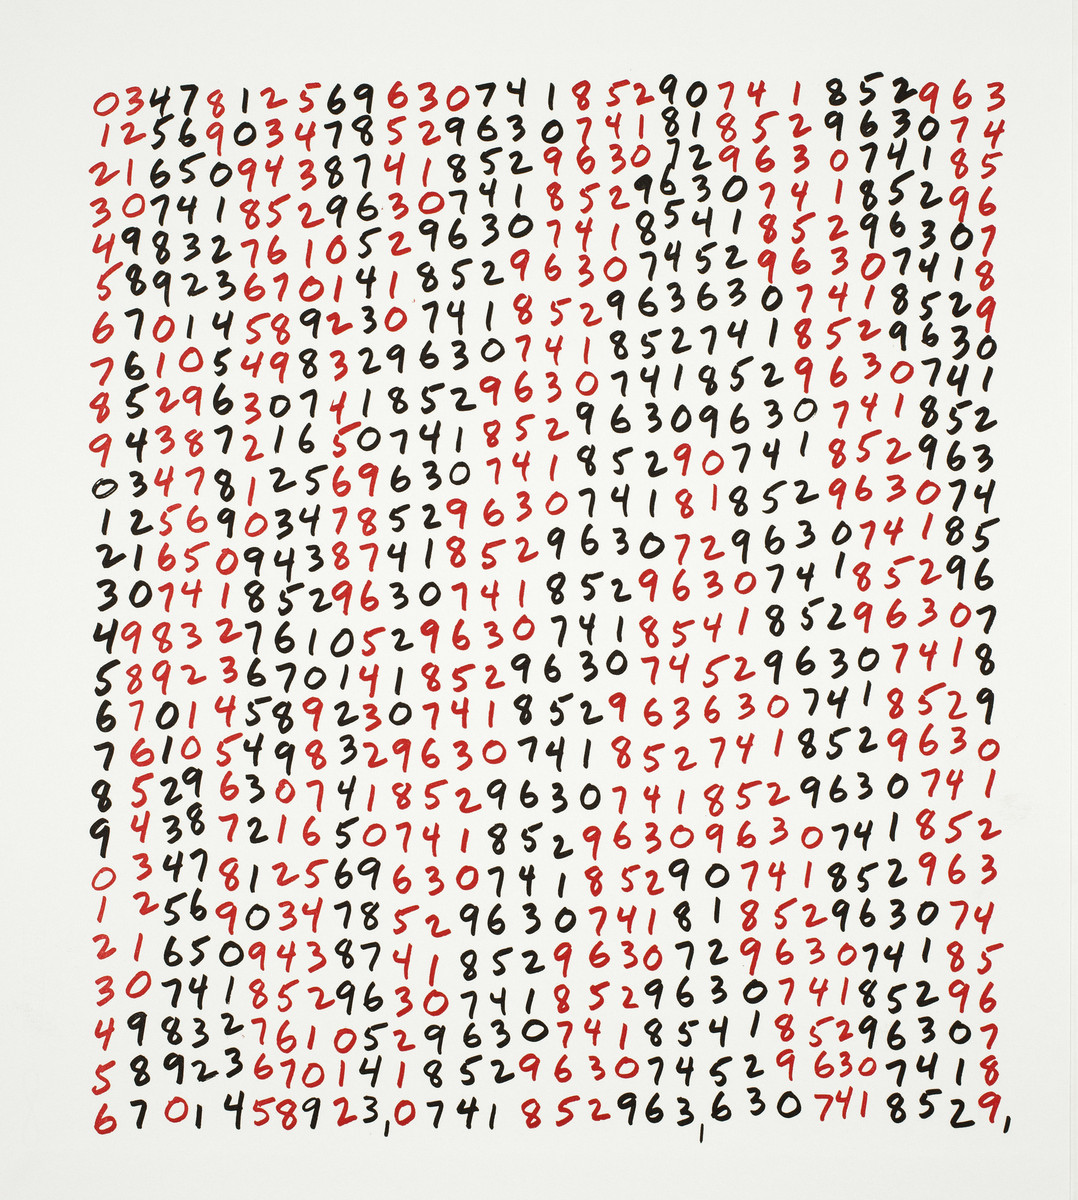 0 3 4 7 8 1 2 5 6 9 6 3 0 7 4 1 8 5 2 9 0 7 4 1 8 5 2 9 6 3
1 2 5 6 9 0 3 4 7 8 5 2 9 6 3 0 7 4 1 8 1 8 5 2 9 6 3 0 7 4
2 1 6 5 0 9 4 3 8 7 4 1 8 5 2 9 6 3 0 7 2 9 6 3 0 7 4 1 8 5
3 0 7 4 1 8 5 2 9 6 3 0 7 4 1 8 5 2 9 6 3 0 7 4 1 8 5 2 9 6
4 9 8 3 2 7 6 1 0 5 2 9 6 3 0 7 4 1 8 5 4 1 8 5 2 9 6 3 0 7
5 8 9 2 3 6 7 0 1 4 1 8 5 2 9 6 3 0 7 4 5 2 9 6 3 0 7 4 1 8
6 7 0 1 4 5 8 9 2 3 0 7 4 1 8 5 2 9 6 3 6 3 0 7 4 1 8 5 2 9
7 6 1 0 5 4 9 8 3 2 9 6 3 0 7 4 1 8 5 2 7 4 1 8 5 2 9 6 3 0
8 5 2 9 6 3 0 7 4 1 8 5 2 9 6 3 0 7 4 1 8 5 2 9 6 3 0 7 4 1
9 4 3 8 7 2 1 6 5 0 7 4 1 8 5 2 9 6 3 0 9 6 3 0 7 4 1 8 5 2
0 3 4 7 8 1 2 5 6 9 6 3 0 7 4 1 8 5 2 9 0 7 4 1 8 5 2 9 6 3
1 2 5 6 9 0 3 4 7 8 5 2 9 6 3 0 7 4 1 8 1 8 5 2 9 6 3 0 7 4
2 1 6 5 0 9 4 3 8 7 4 1 8 5 2 9 6 3 0 7 2 9 6 3 0 7 4 1 8 5
3 0 7 4 1 8 5 2 9 6 3 0 7 4 1 8 5 2 9 6 3 0 7 4 1 8 5 2 9 6
4 9 8 3 2 7 6 1 0 5 2 9 6 3 0 7 4 1 8 5 4 1 8 5 2 9 6 3 0 7
5 8 9 2 3 6 7 0 1 4 1 8 5 2 9 6 3 0 7 4 5 2 9 6 3 0 7 4 1 8
6 7 0 1 4 5 8 9 2 3 0 7 4 1 8 5 2 9 6 3 6 3 0 7 4 1 8 5 2 9
7 6 1 0 5 4 9 8 3 2 9 6 3 0 7 4 1 8 5 2 7 4 1 8 5 2 9 6 3 0
8 5 2 9 6 3 0 7 4 1 8 5 2 9 6 3 0 7 4 1 8 5 2 9 6 3 0 7 4 1
9 4 3 8 7 2 1 6 5 0 7 4 1 8 5 2 9 6 3 0 9 6 3 0 7 4 1 8 5 2
0 3 4 7 8 1 2 5 6 9 6 3 0 7 4 1 8 5 2 9 0 7 4 1 8 5 2 9 6 3
1 2 5 6 9 0 3 4 7 8 5 2 9 6 3 0 7 4 1 8 1 8 5 2 9 6 3 0 7 4
2 1 6 5 0 9 4 3 8 7 4 1 8 5 2 9 6 3 0 7 2 9 6 3 0 7 4 1 8 5
3 0 7 4 1 8 5 2 9 6 3 0 7 4 1 8 5 2 9 6 3 0 7 4 1 8 5 2 9 6
4 9 8 3 2 7 6 1 0 5 2 9 6 3 0 7 4 1 8 5 4 1 8 5 2 9 6 3 0 7
5 8 9 2 3 6 7 0 1 4 1 8 5 2 9 6 3 0 7 4 5 2 9 6 3 0 7 4 1 8
6 7 0 1 4 5 8 9 2 3, 0 7 4 1 8 5 2 9 6 3, 6 3 0 7 4 1 8 5 2 9,